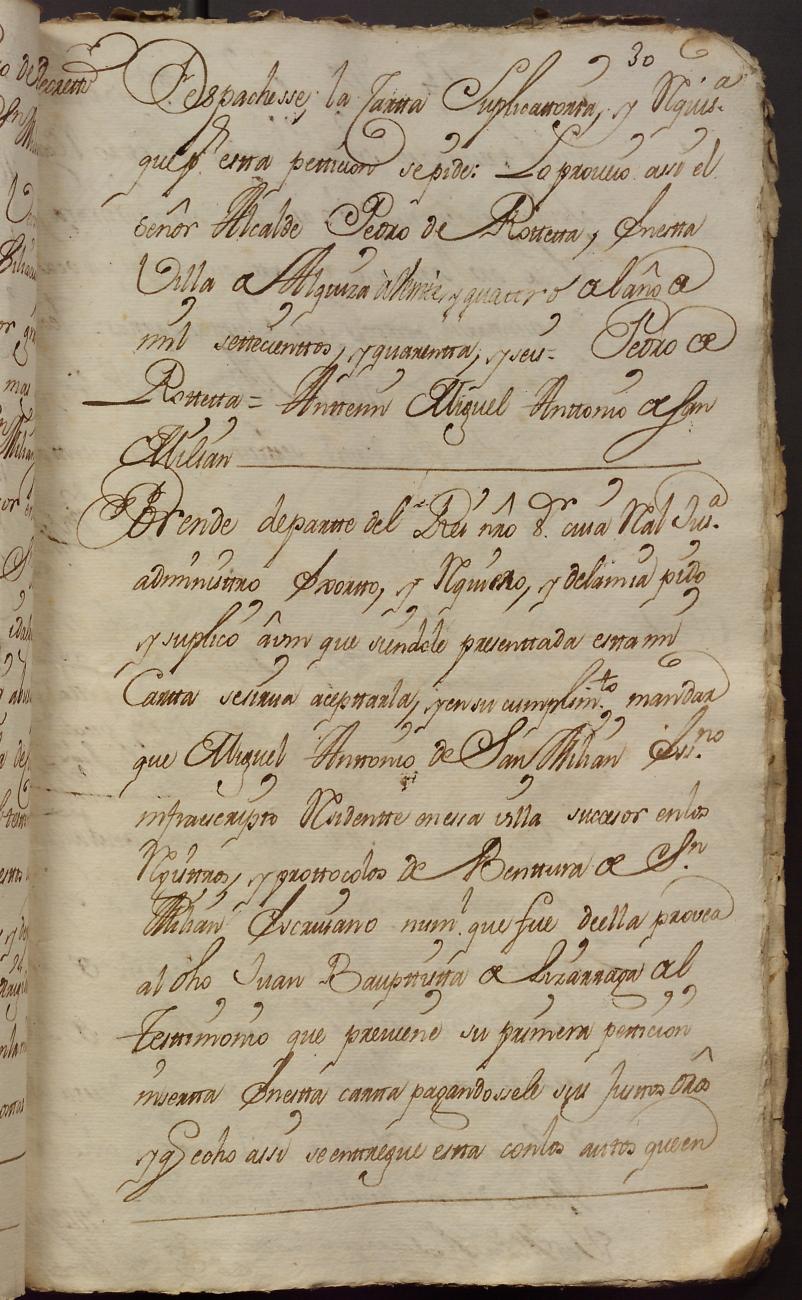 30
Decretto
Despachesse, la Cartta Suplicattoria, y Rquis.ª
que pr. estta pettizion se pide: Lo proveio assi el
señor Alcalde Pedro de Rottetta, Enestta
Villa de Alquiza a y quattro de el año de
mil settecienttos, y quarentta, y seis = Pedro de
Rottetta = Anttemi Miguel Anttonio de San
Milian
Por ende de partte del Rei nrô Sr. cuia Ral Jus.ª
administtro Exortto, y Rquiero, y de la mia pido
y suplico âvm que siendole presenttada estta mi
Cartta se sirva aceptarla, y en su cumplimto. mandar
que Miguel Anttonio de San Milian Essno.
infraescripto Residentte en essa villa sucesor en los
Rgisttros, y prottocolos de Benttura de Sn.
Milian Escrivano numl. que fue de ella provea
al dho Juan Bauptistta de Lizarraga del
Testtimonio que previene su primera petticion
insertta Enestta cartta pagandossele sus justtos drôs
y q Echo assi se enttregue estta con los auttos que en